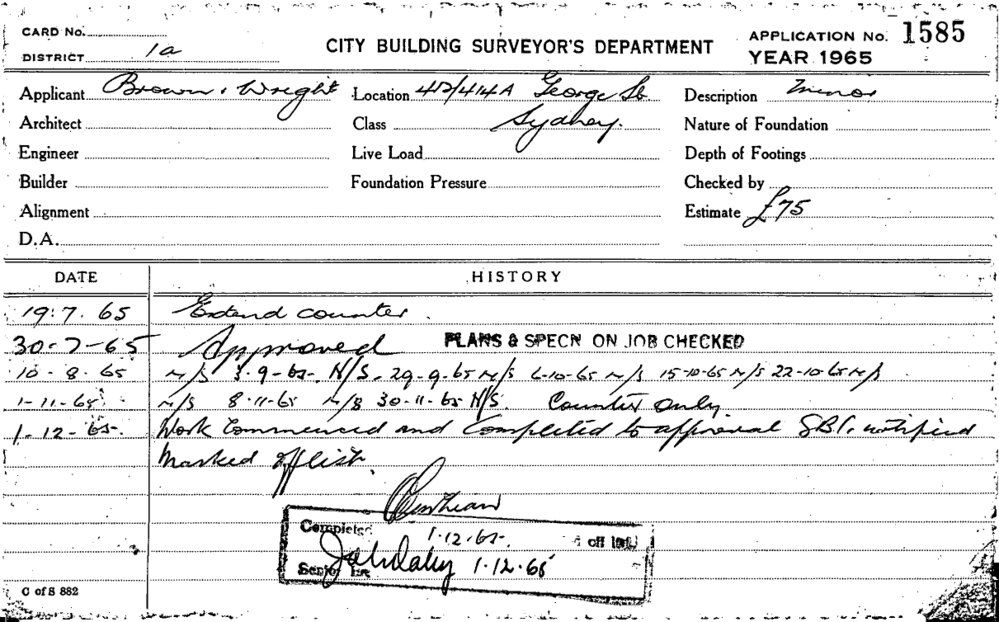 CARD No.
DISTRICT 1a
CITY BUILDING SURVEYOR'S DEPARTMENT
APPLICATION No. 1585
YEAR 1965
Applicant Brown & Wright Location 412/414A George St. Description Minor
Architect Class Sydney. Nature of Foundation
Engineer Live Load Depth of Footings
Builder Foundation Pressure Checked by
Alignment Estimate £75
D.A.
DATE HISTORY
19.7.65 Extend counter.
30-7-65 Approved PLANS & SPECN ON JOB CHECKED
10-8-65 N/S 3-9-65. N/S. 29-9-65 N/S 6-10-65 N/S 15-10-65 N/S 22-10-65 N/S
1-11-65 N/S 8-11-65 N/S 30-11-65 N/S. Counter only.
1-12-65. Work Commenced and Completed to approval notified
Marked off list.
Completed 1.12.65. off list
Senior John Daley 1.12.65
C of S 882